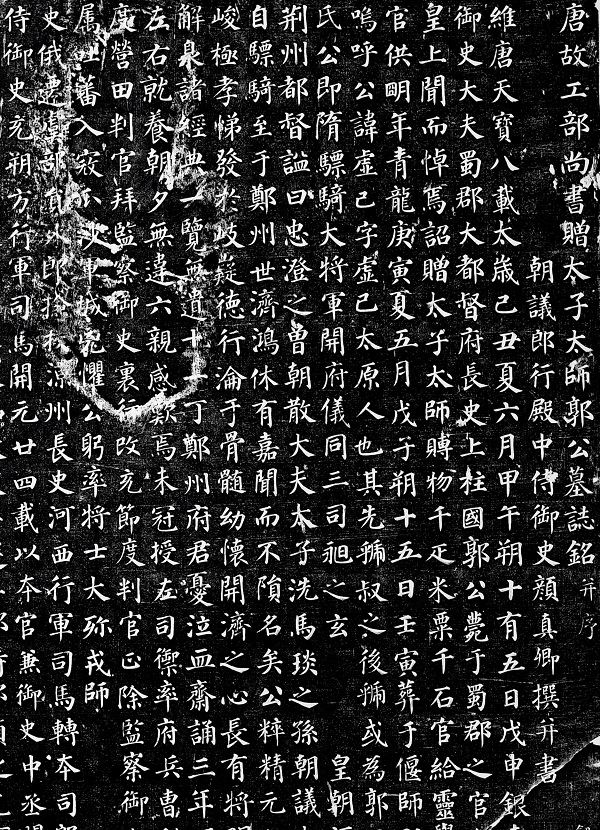 唐故工部尚書贈太子太師郭公墓誌銘并序
朝議郎行殿中侍御史顔真卿撰并書
維唐天寶八載太歲己丑夏六月甲午朔十有五日戊申銀
御史大夫蜀郡大都督府長史上柱國郭公薨于蜀郡之官
皇上聞而悼焉詔贈太子太師賻物千疋米粟千石官給靈轝
官供明年青龍庚寅夏五月戊子朔十五日壬寅葬于偃師
嗚呼公諱虛己字虛己太原人也其先虢叔之後虢或為郭
氏公即隋驃騎大將軍開府儀同三司昶之玄 皇朝
荊州都督謚曰忠澄之曾朝散大夫太子洗馬琰之孫朝議
自驃騎至于鄭州世濟鴻休有嘉聞而不隕名矣公粹精元
峻極孝悌發於岐嶷德行淪于骨髓幼懷開濟之心長有將
解泉諸經典一覽無遺十一丁鄭州府君憂泣血齋誦三年
左右就養朝夕無違六親感歎焉未冠授左司禦率府兵曹
度營田判官拜監察御史裏行改充節度判官正除監察御
屬吐蕃入寇瓜沙軍城兇懼公躬率將士大殄戎師
史俄遷虞部員外郎檢校涼州長史河西行軍司馬轉本司
侍御史充朔方行軍司馬開元廿四載以本官兼御史中丞